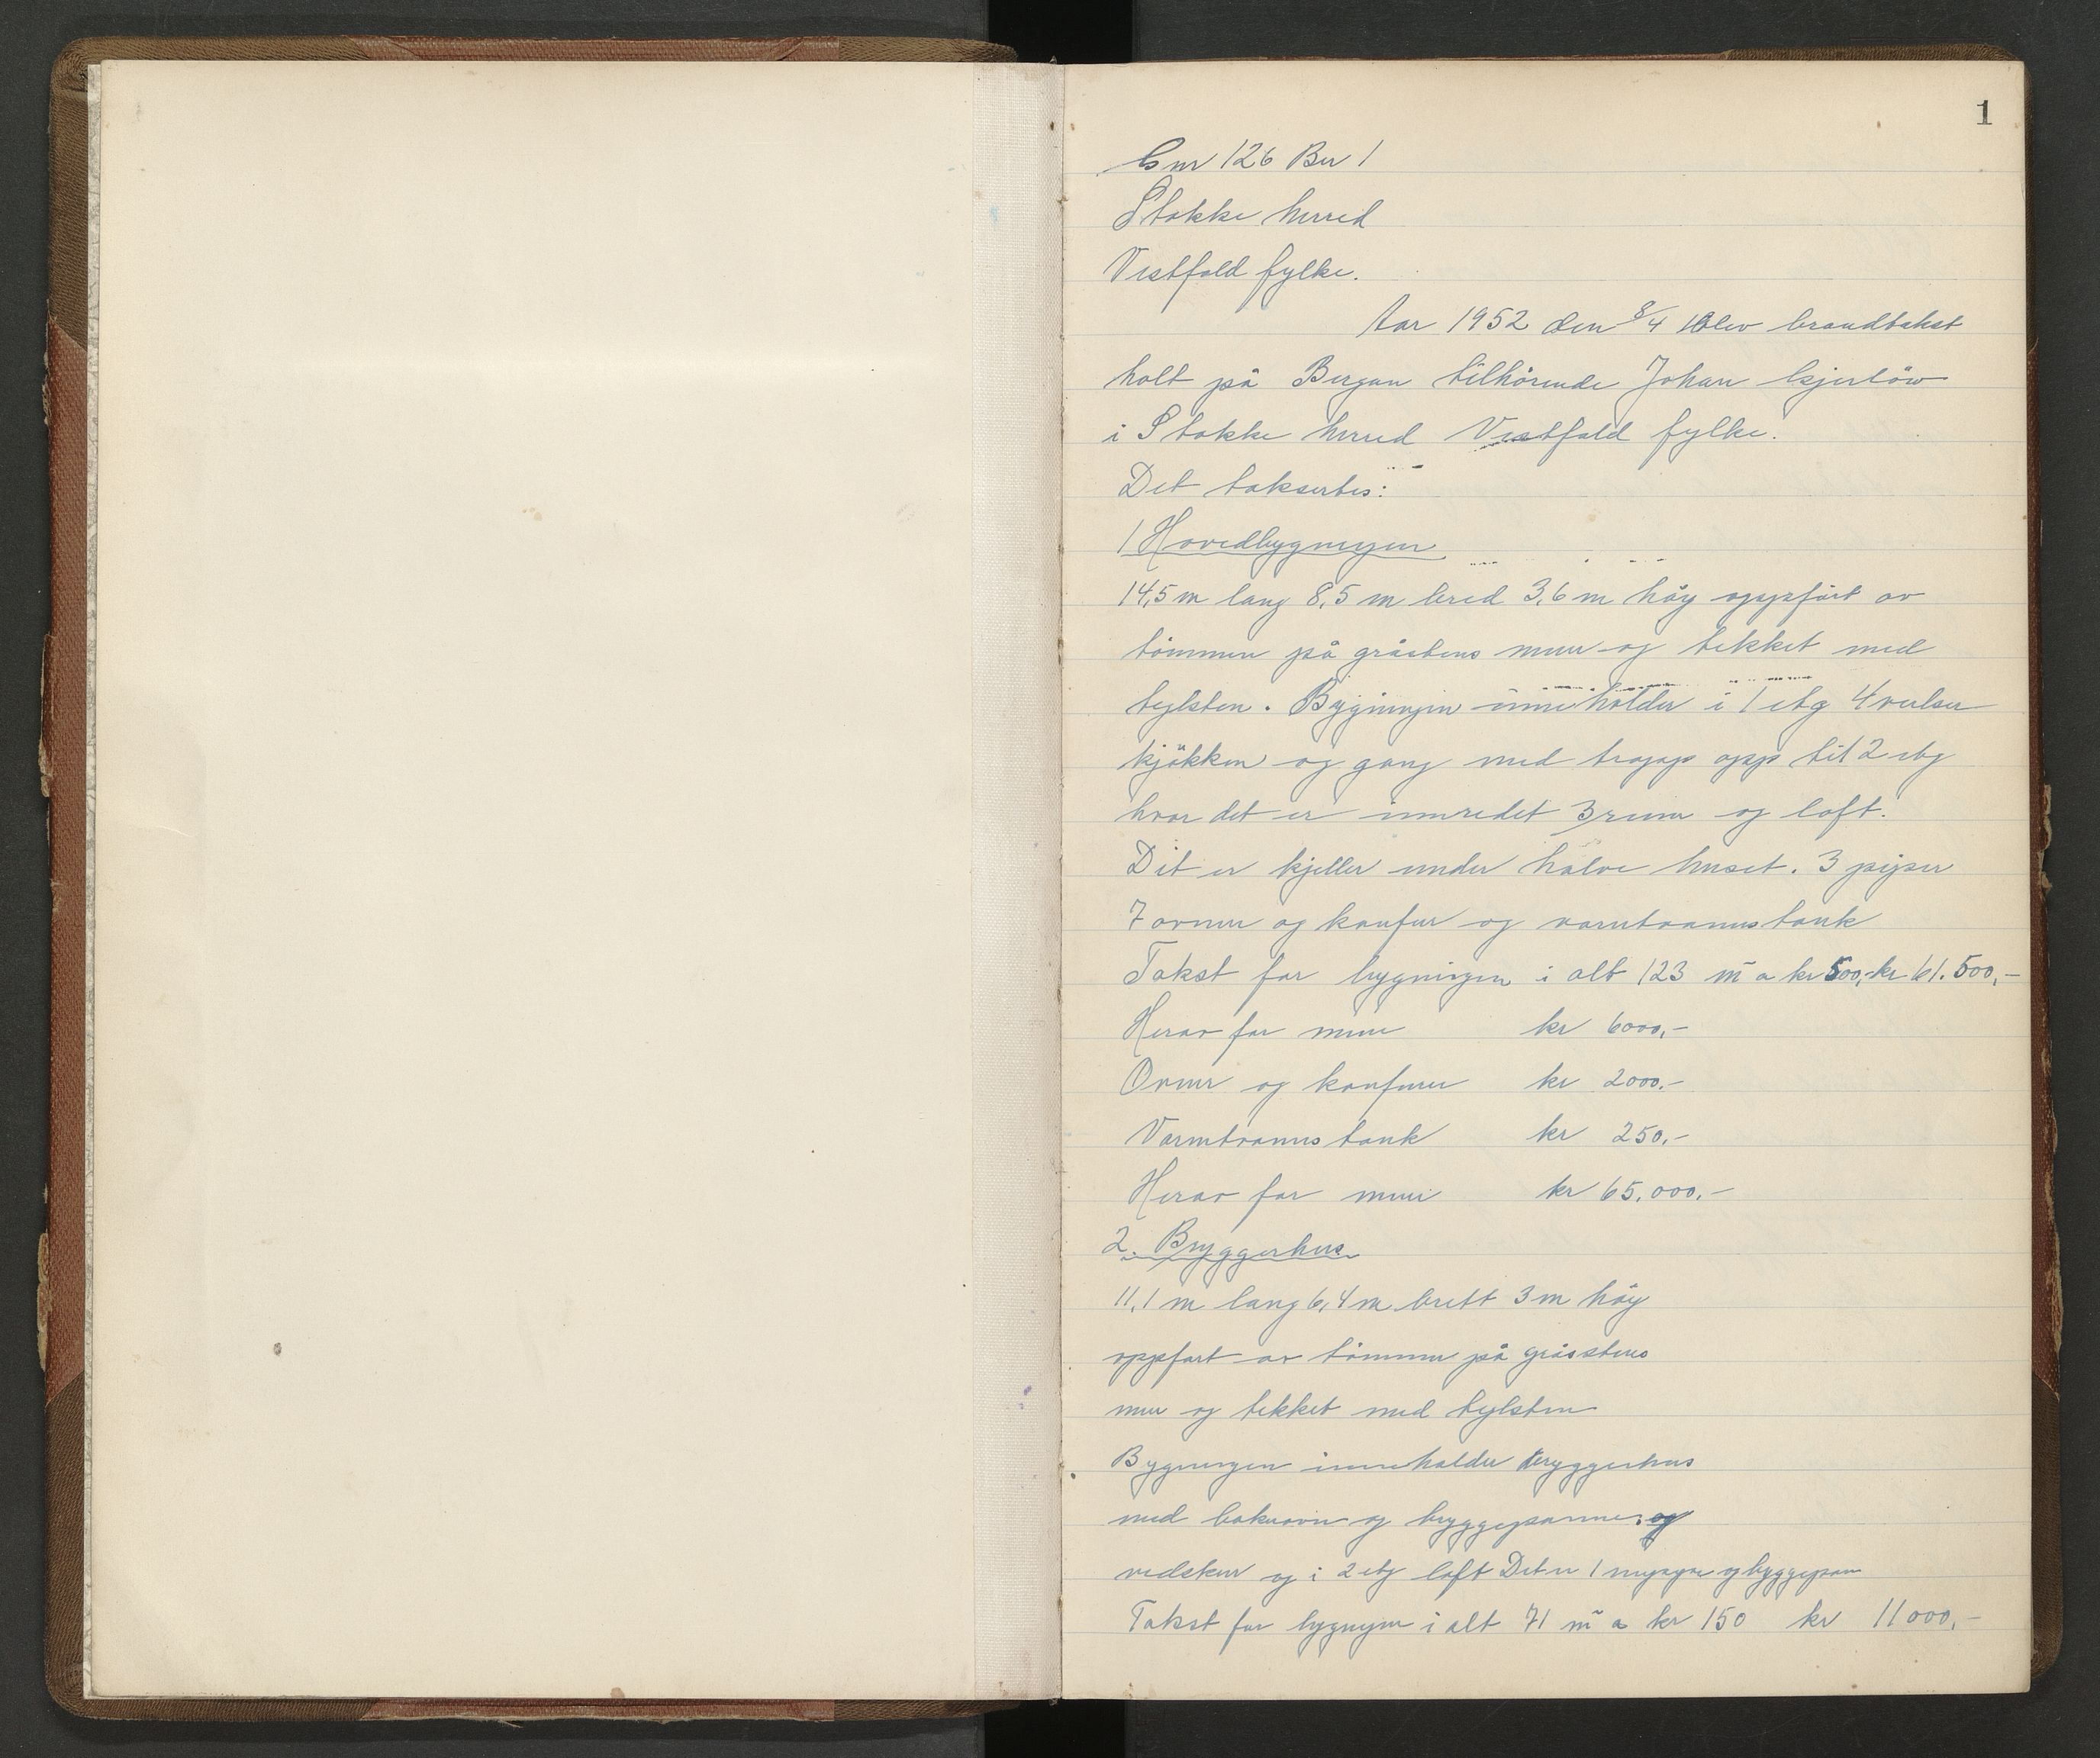 1
Gnr 126 Bnr 1
Stokke herred
Vestfold fylke.
Aar 1952 den 8/4 blev brandtakst
holt på Bergan tilhörende Johan Gjerløw
i Stokke herred Vestfold fylke.
Det taksertes:
1 Hovedbygningen
14,5 m lang 8,5 m bred 3,6 m höy oppfört av
tömmer på gråstens mur og tekket med
teglsten. Bygningen inneholder i 1 etg 4 verelser
kjökken og gang med trapp opp til 2 etg
hvor det er innredet 3 rum og loft.
Det er kjeller under halve huset. 3 piper
7 ovner og komfur og varmtvannstank
Takst for bygningen i alt 123 m² a kr 500,- kr 61.500,-
Herav for mur kr 6000,-
Ovner og komfurer kr 2000.-
Varmtvanns tank kr 250,-
Herav for mur kr 65.000,-
2. Bryggerhus
11,1 m lang 6,4 m brett 3 m höy
oppfort av tömmer på gråsstens
mur og tekket med teglsten
Bygningen inneholder bryggerhus
med bakerovn og bryggepanne, og
vedskur og i 2 etg loft Det er 1 pipe og bryggepan
Takst for bygngen i alt 71 m² a kr 150 kr 11000,-